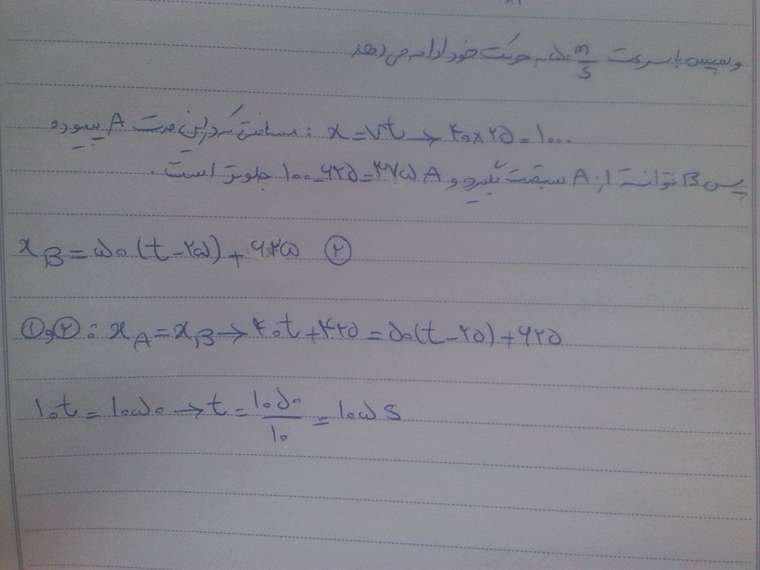 و سپس با سرعت ۵۰ m/s به حرکت خود ادامه می دهد
مسافتی که در این مدت A پیموده : x = vt → ۴۰×۲۵ = ۱۰۰۰
پس B نتوانسته از A سبقت بگیرد و A ۱۰۰۰-۶۲۵=۳۷۵ جلوتر است.
x_B = ۵۰(t-۲۵)+۶۲۵ ②
①و② : x_A = x_B → ۴۰t+۴۲۵ = ۵۰(t-۲۵)+۶۲۵
۱۰t = ۱۰۵۰ → t = ۱۰۵۰/۱۰ = ۱۰۵ s